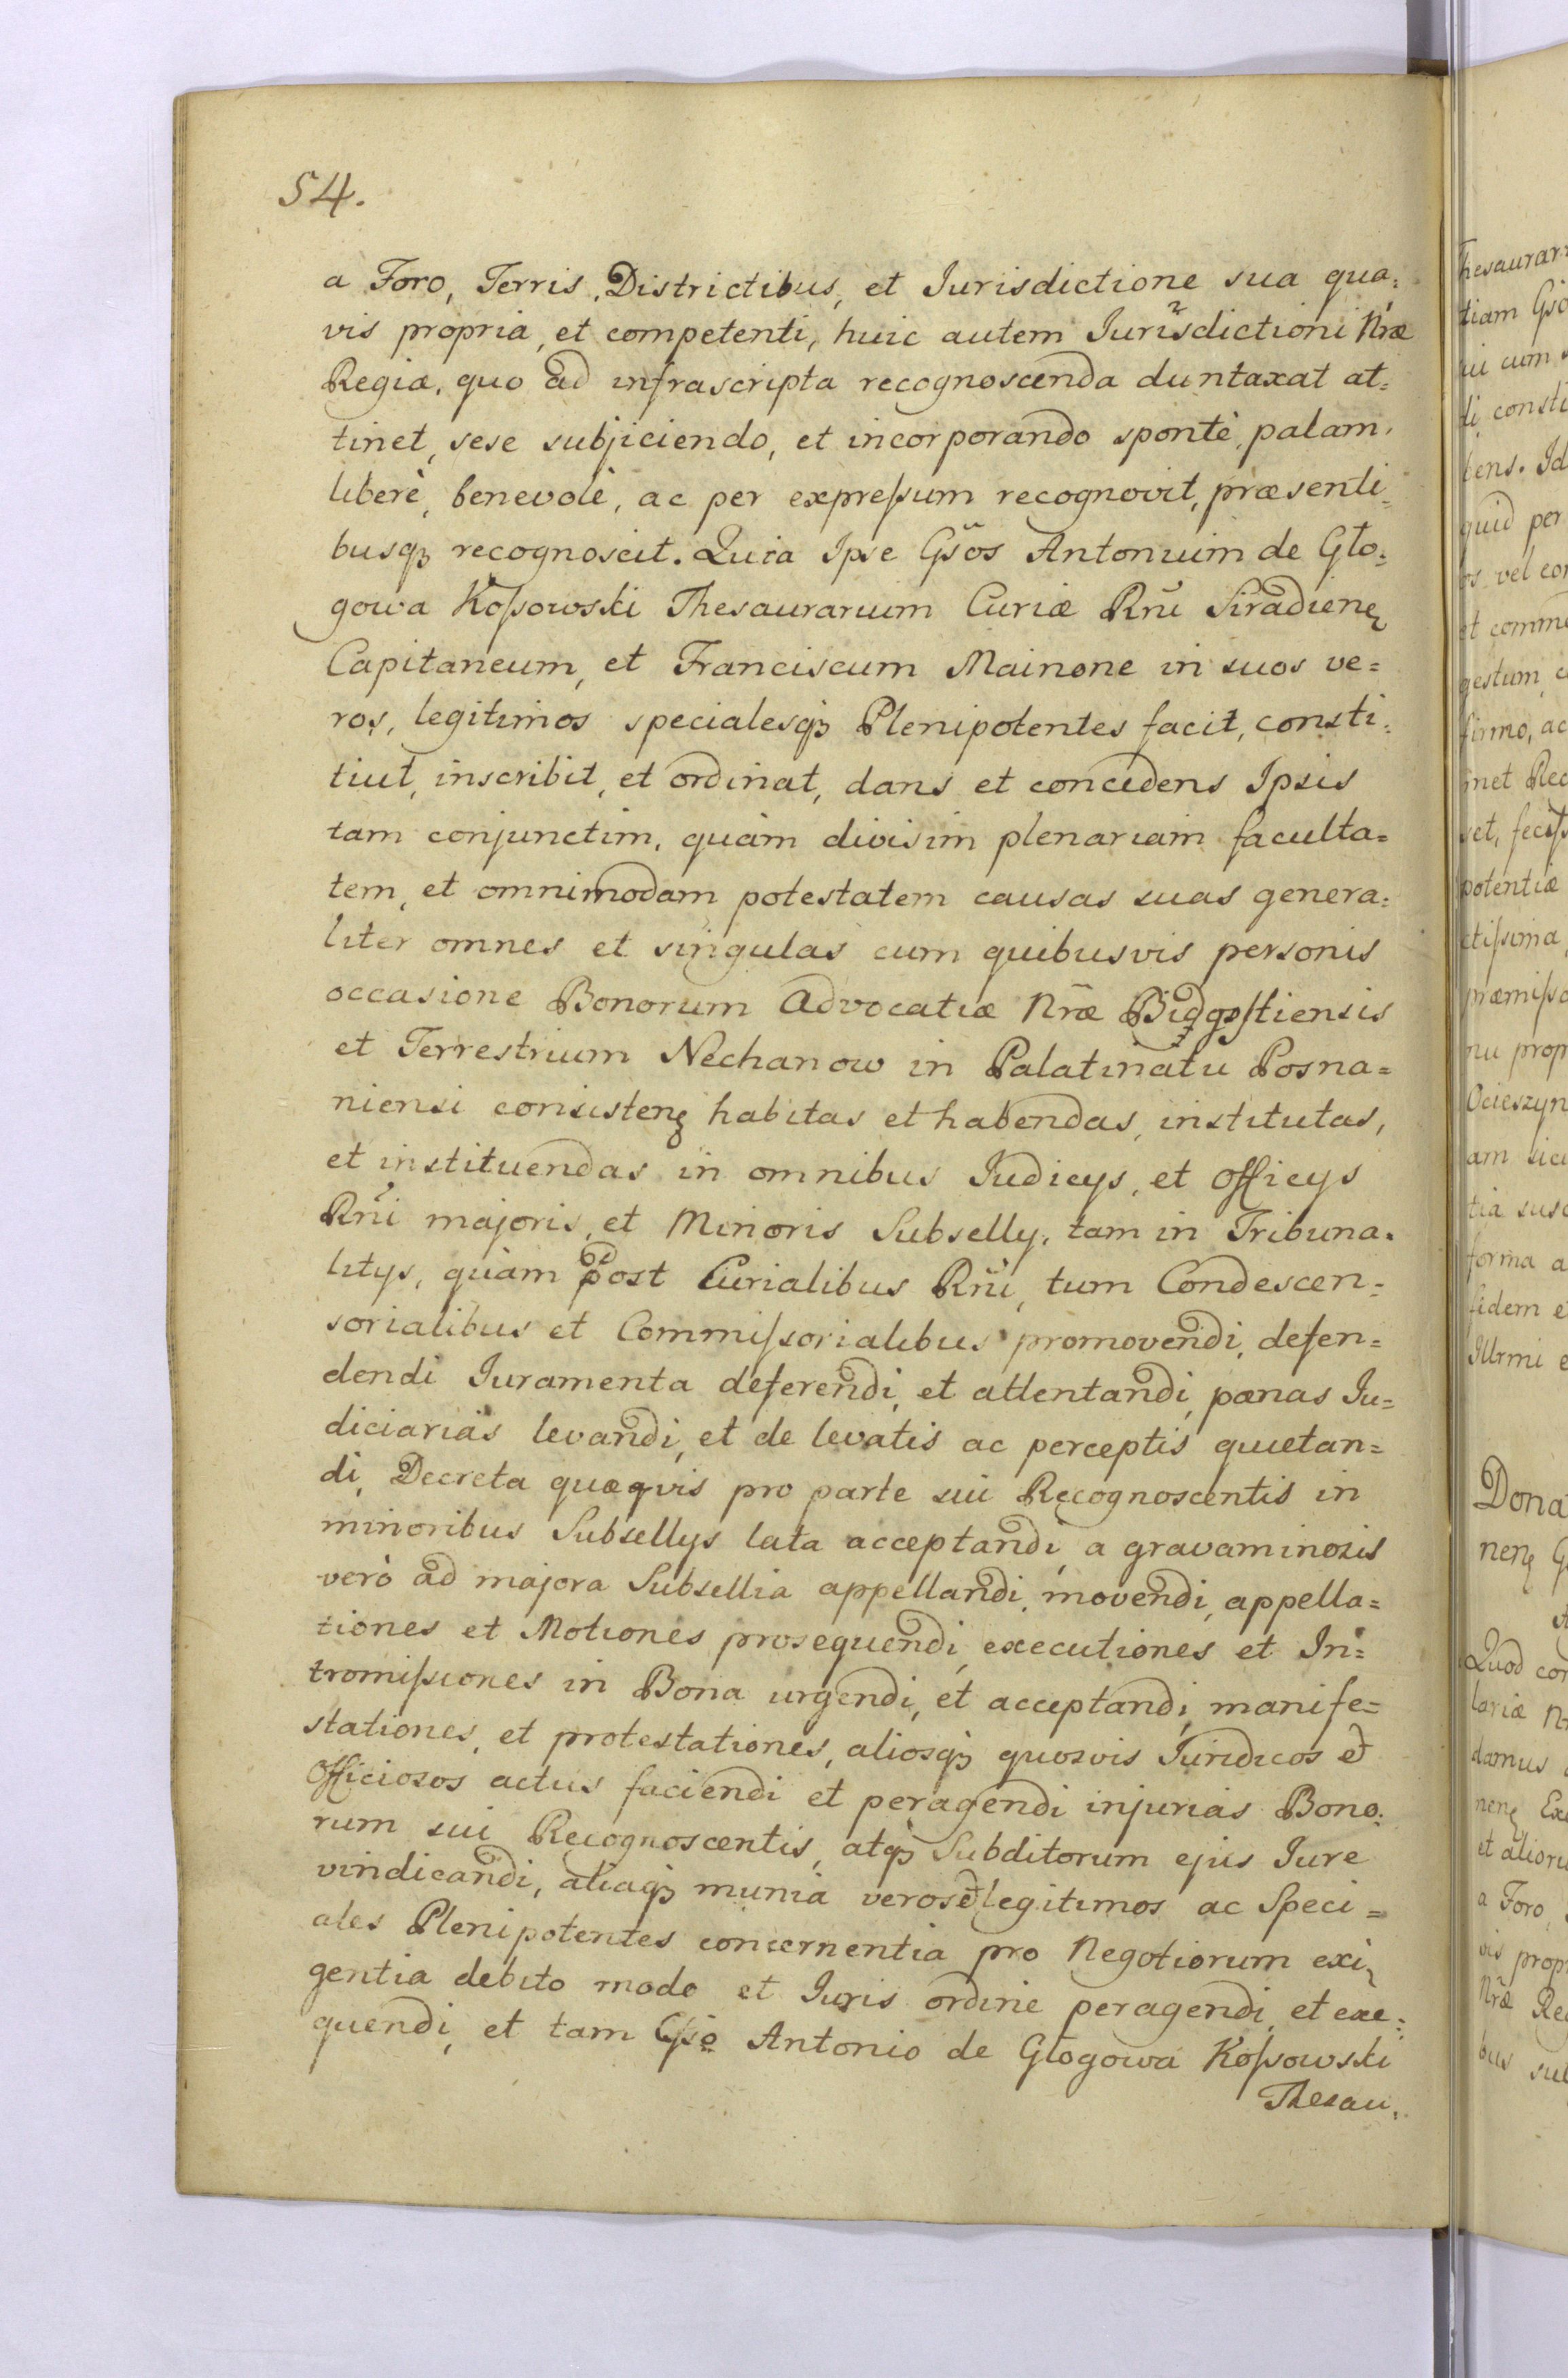 54.
a Foro, Terris, Districtibus, et Jurisdictione sua qua=
vis propria, et competenti, huic autem Jurisdictioni Nræ
Regiæ, quo ad infrascripta recognoscenda duntaxat at=
tinet, sese subjiciendo, et incorporando spontè, palam,
liberè, benevolè, ac per expreſsum recognovit, præsenti=
busq₃ recognoscit. Quia Ipse Gsõs Antonium de Gło=
gowa Koſsowski Thesaurarium Curiæ Rñi Siradien₃
Capitaneum, et Franciscum Mainone in suos ve=
ros, legitimos specialesq₃ Plenipotentes facit, consti=
tiut, inscribit, et ordinat, dans et concedens Ipsis
tam conjunctim, quàm divisim plenariam faculta=
tem, et omnimodam potestatem causas suas genera=
liter omnes et singulas cum quibusvis personis
occasione Bonorum Advocatiæ Nræ Bidgostiensis
et Terrestrium Nechanow in Palatinatu Posna=
niensi consisten₃ habitas et habendas, institutas,
et instituendas in omnibus Judicys, et Officys
Rñi majoris, et Minoris Subselly, tam in Tribuna=
litys, quàm post Curialibus Rñi, tum Condescen=
sorialibus et Commiſsorialibus promovendi, defen=
dendi Juramenta deferendi, et attentandi, pænas Ju=
diciarias levandi, et de levatis ac perceptis quietan=
di, Decreta quæqvis pro parte sui Recognoscentis in
minoribus Subsellys lata acceptandi, a gravaminosis
verò ad majora Subsellia appellandi, movendi, appella=
tiones et Motiones prosequendi, executiones et In=
tromiſsiones in Bona urgendi, et acceptandi, manife=
stationes, et protestationes, aliosq₃ quosvis Juridicos et
Officiosos actus faciendi et peragendi injurias Bono=
rum sui Recognoscentis, atq₃ Subditorum ejus Jure
vindicandi, aliaq₃ munia veros et legitimos ac Speci=
ales Plenipotentes concernentia pro Negotiorum exi=
gentia debito modo et Juris ordine peragendi, et exe=
quendi, et tam Gso Antonio de Głogowa Koſsowski
Thesau=